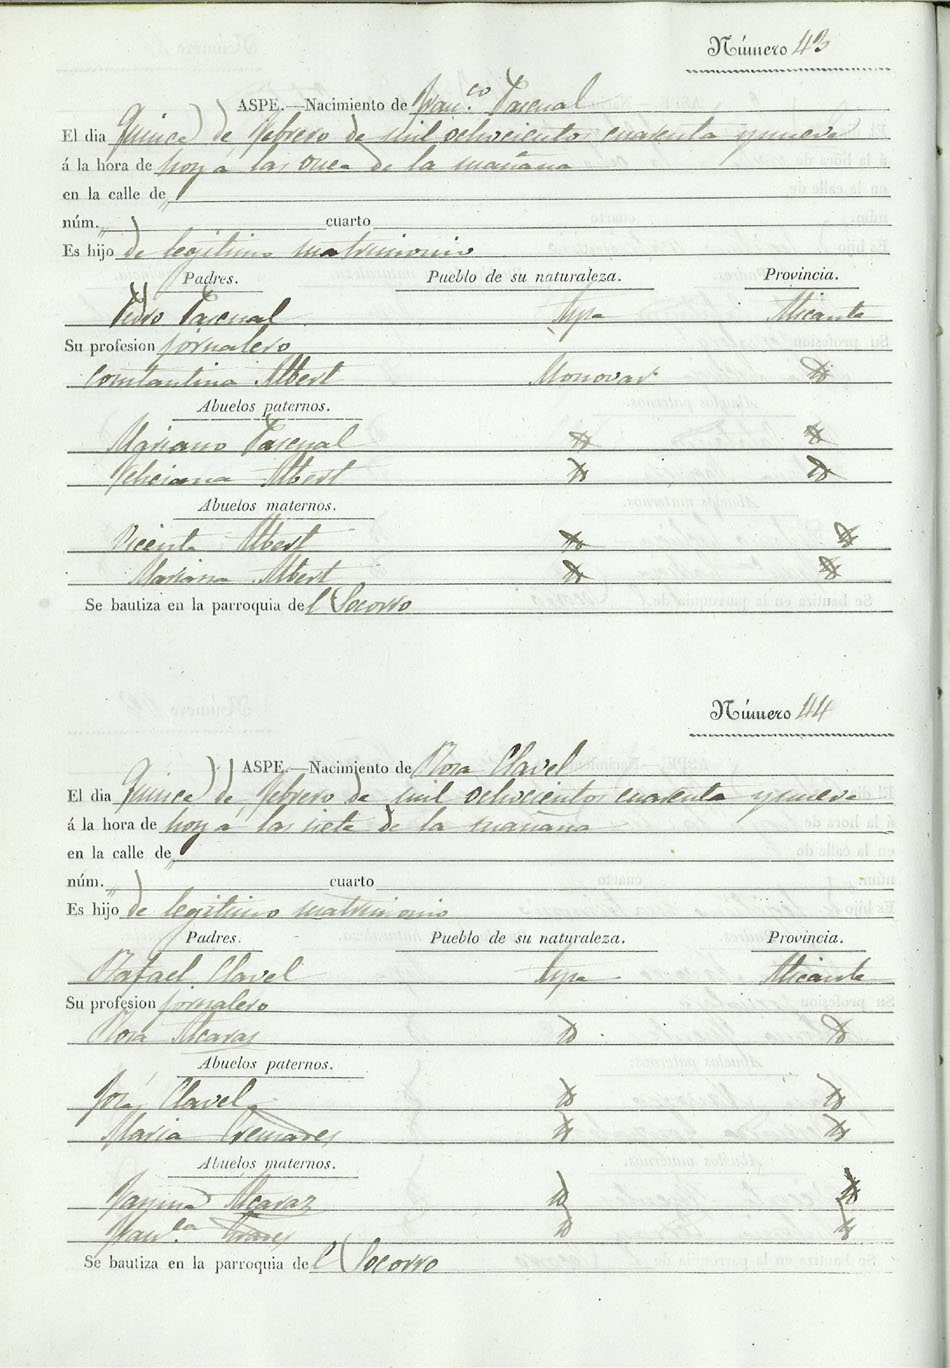 Número 43
ASPE.—Nacimiento de Fran.co Pascual
El dia Quince de Febrero de mil ochocientos cuarenta y nueve
á la hora de hoy a las once de la mañana
en la calle de "
núm. " cuarto
Es hijo de legitimo matrimonio
Padres. Pueblo de su naturaleza. Provincia.
Pedro Pascual Aspe Alicante
Su profesion jornalero
Constantina Albert Monovar
Abuelos paternos.
Mariano Pascual
Feliciana Albert
Abuelos maternos.
Vicente Albert
Mariana Albert
Se bautiza en la parroquia del Socorro
Número 44
ASPE.—Nacimiento de Rosa Clavel
El dia Quince de Febrero de mil ochocientos cuarenta y nueve
á la hora de hoy a las siete de la mañana
en la calle de "
núm. " cuarto
Es hijo de legitimo matrimonio
Padres. Pueblo de su naturaleza. Provincia.
Rafael Clavel Aspe Alicante
Su profesion jornalero
Rosa Alcaras
Abuelos paternos.
José Clavel
Maria
Abuelos maternos.
Alcaraz
Fran.ca
Se bautiza en la parroquia del Socorro